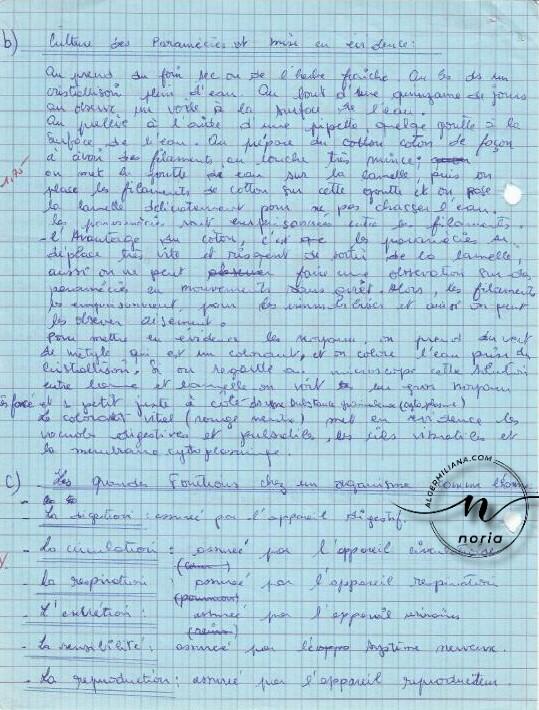 b) Culture des Paramécies et mise en evidence:
On prend du foin sec ou de l'herbe fraîche. On les ds un
cristallisoir plein d'eau. Au bout d'une quinzaine de jours
on observe un voile à la surface de l'eau.
On prélève à l'aide d'une pipette, quelque goutte à la
surface de l'eau. On prépare du coton de façon
à avoir des filaments en couche très mince;
1,75
on met la goutte de eau sur la lamelle, puis on
place les filaments de coton sur cette goutte et on pose
la lamelle délicatement pour ne pas chasser l'eau.
les paramécies sont emprisonnées entre les filaments.
- l'Avantage du coton, c'est que les paramécies se
déplace très vite et risquent de sortir de la lamelle,
aussi on ne peut faire une observation sur des
paramécies en mouvements sans arrêt. Alors, les filaments
les emprisonnent pour les immobilisées et ainsi on peut
les observer aisement.
Pour mettre en evidence les noyaux on prend du vert
de métyle qui est un colorant, et on colore l'eau prise du
cristallisoir. Si on regarde au microscope cette solution
entre lame et lamelle on voit un gros noyau
et 1 petit juste à côté substance granuleuse (cytoplasme)
Le colorant vital (rouge neutre) met en evidence les
vacuoles digestives et pulsatiles, les cils vibratiles et
la membrane cytoplasmique.
c) - Les grandes Fonctions chez un organisme comme l'homme
- La digestion: assurée par l'appareil digestif.
- La circulation: assurée par l'appareil circulatoire
- la respiration assurée par l'appareil respiratoire
(poumons)
- L'excrétion: assurée par l'appareil urinaire
(reins)
- La sensibilité: assurée par le système nerveux.
- La reproduction: assurée par l'appareil reproducteur.
ALGERMILIANA.COM
n
noria